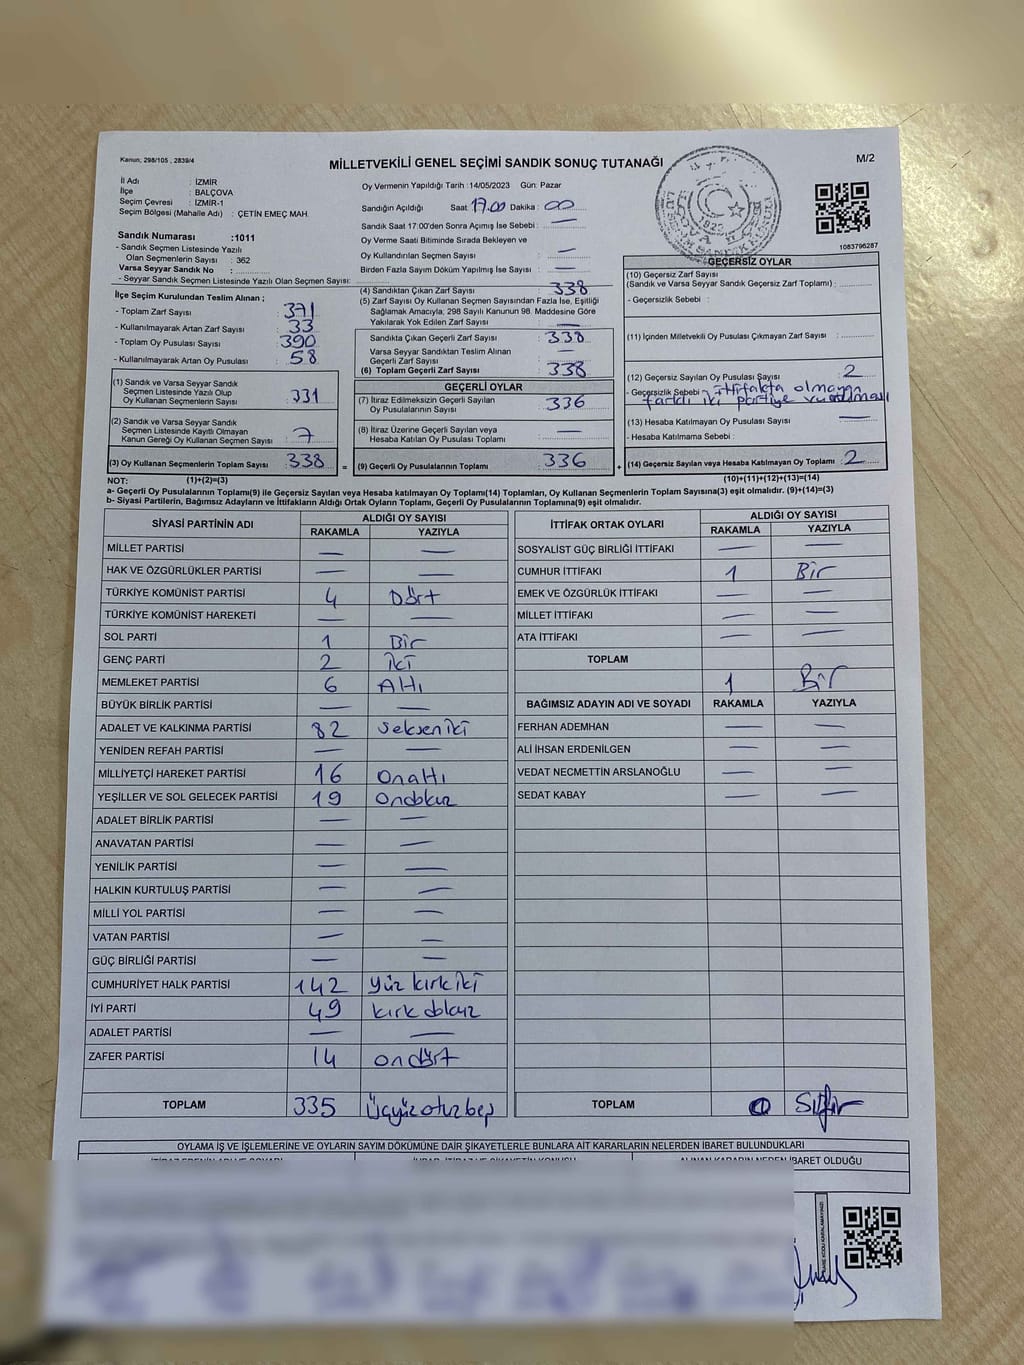 Kanun; 298/105 , 2839/4
MİLLETVEKİLİ GENEL SEÇİMİ SANDIK SONUÇ TUTANAĞI
M/2
İl Adı : İZMİR
İlçe : BALÇOVA
Seçim Çevresi : İZMİR-1
Seçim Bölgesi (Mahalle Adı) : ÇETİN EMEÇ MAH.
Sandık Numarası :1011
- Sandık Seçmen Listesinde Yazılı
Olan Seçmenlerin Sayısı : 362
Varsa Seyyar Sandık No :
- Seyyar Sandık Seçmen Listesinde Yazılı Olan Seçmen Sayısı:
İlçe Seçim Kurulundan Teslim Alınan ;
- Toplam Zarf Sayısı : 371
- Kullanılmayarak Artan Zarf Sayısı : 33
- Toplam Oy Pusulası Sayısı : 390
- Kullanılmayarak Artan Oy Pusulası : 58
(1) Sandık ve Varsa Seyyar Sandık
Seçmen Listesinde Yazılı Olup
Oy Kullanan Seçmenlerin Sayısı : 331
(2) Sandık ve Varsa Seyyar Sandık
Seçmen Listesinde Kayıtlı Olmayan
Kanun Gereği Oy Kullanan Seçmen Sayısı : 7
(3) Oy Kullanan Seçmenlerin Toplam Sayısı : 338 =
Oy Vermenin Yapıldığı Tarih : 14/05/2023 Gün: Pazar
Sandığın Açıldığı Saat : 17.00 Dakika : 00
Sandık Saat 17:00'den Sonra Açımış İse Sebebi : —
Oy Verme Saati Bitiminde Sırada Bekleyen ve
Oy Kullandırılan Seçmen Sayısı : —
Birden Fazla Sayım Döküm Yapılmış İse Sayısı : —
(4) Sandıktan Çıkan Zarf Sayısı : 338
(5) Zarf Sayısı Oy Kullanan Seçmen Sayısından Fazla İse, Eşitliği
Sağlamak Amacıyla, 298 Sayılı Kanunun 98. Maddesine Göre
Yakılarak Yok Edilen Zarf Sayısı : —
Sandıkta Çıkan Geçerli Zarf Sayısı : 338
Varsa Seyyar Sandıktan Teslim Alınan
Geçerli Zarf Sayısı : —
(6) Toplam Geçerli Zarf Sayısı : 338
GEÇERLİ OYLAR
(7) İtiraz Edilmeksizin Geçerli Sayılan
Oy Pusulalarının Sayısı : 336
(8) İtiraz Üzerine Geçerli Sayılan veya
Hesaba Katılan Oy Pusulası Toplamı : —
(9) Geçerli Oy Pusulalarının Toplamı : 336 +
1083796287
GEÇERSİZ OYLAR
(10) Geçersiz Zarf Sayısı
(Sandık ve Varsa Seyyar Sandık Geçersiz Zarf Toplamı) :
- Geçersizlik Sebebi :
(11) İçinden Milletvekili Oy Pusulası Çıkmayan Zarf Sayısı :
(12) Geçersiz Sayılan Oy Pusulası Sayısı : 2
- Geçersizlik Sebebi : ittifakta olmayan
farklı iki partiye vurulması
(13) Hesaba Katılmayan Oy Pusulası Sayısı : —
- Hesaba Katılmama Sebebi :
(14) Geçersiz Sayılan veya Hesaba Katılmayan Oy Toplamı : 2
NOT: (1)+(2)=(3) (10)+(11)+(12)+(13)=(14)
a- Geçerli Oy Pusulalarının Toplamı(9) ile Geçersiz Sayılan veya Hesaba katılmayan Oy Toplamı(14) Toplamları, Oy Kullanan Seçmenlerin Toplam Sayısına(3) eşit olmalıdır. (9)+(14)=(3)
b- Siyasi Partilerin, Bağımsız Adayların ve İttifakların Aldığı Ortak Oyların Toplamı, Geçerli Oy Pusulalarının Toplamına(9) eşit olmalıdır.
SİYASİ PARTİNİN ADI ALDIĞI OY SAYISI
RAKAMLA YAZIYLA
MİLLET PARTİSİ — —
HAK VE ÖZGÜRLÜKLER PARTİSİ — —
TÜRKİYE KOMÜNİST PARTİSİ 4 Dört
TÜRKİYE KOMÜNİST HAREKETİ — —
SOL PARTİ 1 Bir
GENÇ PARTİ 2 iki
MEMLEKET PARTİSİ 6 Altı
BÜYÜK BİRLİK PARTİSİ — —
ADALET VE KALKINMA PARTİSİ 82 seksen iki
YENİDEN REFAH PARTİSİ — —
MİLLİYETÇİ HAREKET PARTİSİ 16 onaltı
YEŞİLLER VE SOL GELECEK PARTİSİ 19 ondokuz
ADALET BİRLİK PARTİSİ — —
ANAVATAN PARTİSİ — —
YENİLİK PARTİSİ — —
HALKIN KURTULUŞ PARTİSİ — —
MİLLİ YOL PARTİSİ — —
VATAN PARTİSİ — —
GÜÇ BİRLİĞİ PARTİSİ — —
CUMHURİYET HALK PARTİSİ 142 yüz kırk iki
İYİ PARTİ 49 kırk dokuz
ADALET PARTİSİ — —
ZAFER PARTİSİ 14 on dört
TOPLAM 335 Üçyüzotuzbeş
İTTİFAK ORTAK OYLARI ALDIĞI OY SAYISI
RAKAMLA YAZIYLA
SOSYALİST GÜÇ BİRLİĞİ İTTİFAKI — —
CUMHUR İTTİFAKI 1 Bir
EMEK VE ÖZGÜRLÜK İTTİFAKI — —
MİLLET İTTİFAKI — —
ATA İTTİFAKI — —
TOPLAM 1 Bir
BAĞIMSIZ ADAYIN ADI VE SOYADI RAKAMLA YAZIYLA
FERHAN ADEMHAN — —
ALİ İHSAN ERDENİLGEN — —
VEDAT NECMETTİN ARSLANOĞLU — —
SEDAT KABAY — —
TOPLAM 0 Sıfır
OYLAMA İŞ VE İŞLEMLERİNE VE OYLARIN SAYIM DÖKÜMÜNE DAİR ŞİKAYETLERLE BUNLARA AİT KARARLARIN NELERDEN İBARET BULUNDUKLARI
ALINAN KARARIN NEDEN İBARET OLDUĞU